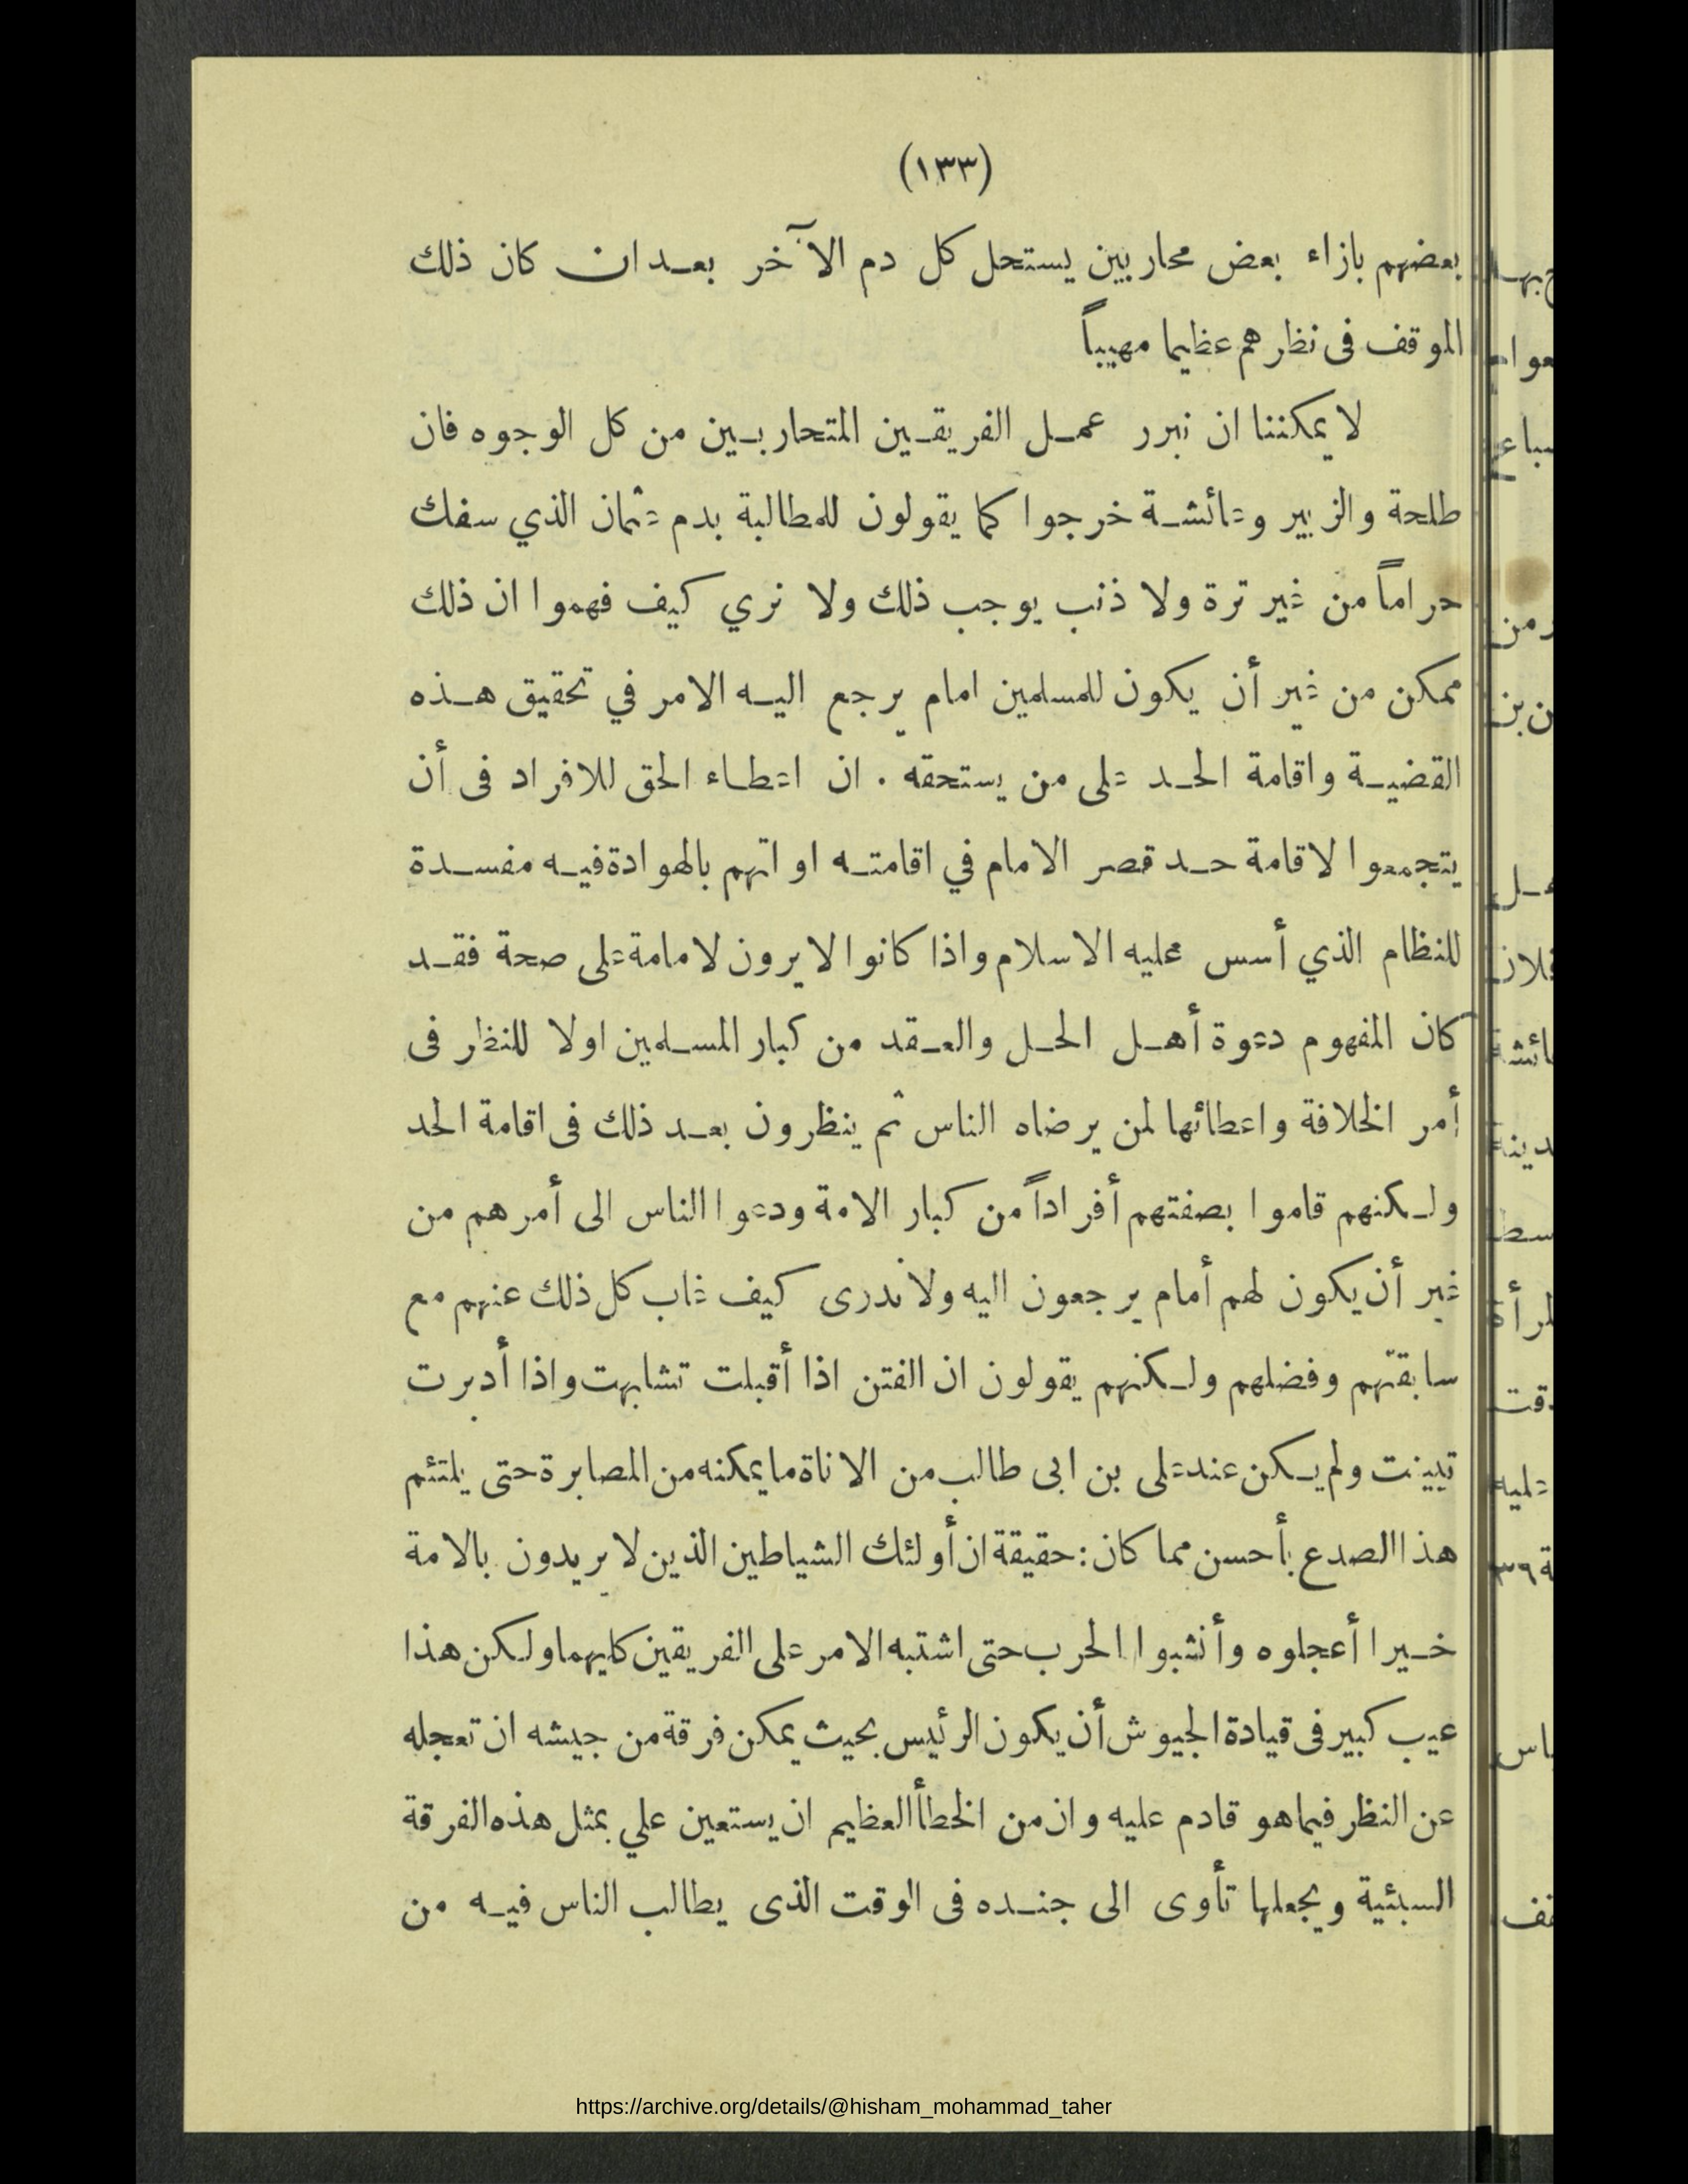 (١٣٣)
بعضهم بازاء بعض محاربين يستحل كل دم الآخر بعد ان كان ذلك
الموقف فى نظرهم عظيما مهيباً
لا يمكننا ان نبرر عمل الفريقين المتحاربين من كل الوجوه فان
طلحة والزبير وعائشة خرجوا كما يقولون للمطالبة بدم عثمان الذي سفك
حراماً من غير ترة ولا ذنب يوجب ذلك ولا نري كيف فهموا ان ذلك
ممكن من غير أن يكون للمسلمين امام يرجع اليه الامر في تحقيق هذه
القضية واقامة الحد على من يستحقه . ان اعطاء الحق للافراد فى أن
يتجمعوا لاقامة حد قصر الامام في اقامته او اتهم بالهوادة فيه مفسدة
للنظام الذي أسس عليه الاسلام واذا كانوا لا يرون لامامة على صحة فقد
كان المفهوم دعوة أهل الحل والعقد من كبار المسلمين اولا للنظر فى
أمر الخلافة واعطائها لمن يرضاه الناس ثم ينظرون بعد ذلك فى اقامة الحد
ولكنهم قاموا بصفتهم أفراداً من كبار الامة ودعوا الناس الى أمرهم من
غير أن يكون لهم أمام يرجعون اليه ولا ندرى كيف غاب كل ذلك عنهم مع
سابقتهم وفضلهم ولكنهم يقولون ان الفتن اذا أقبلت تشابهت واذا أدبرت
تبينت ولم يكن عند على بن ابى طالب من الاناة ما يمكنه من المصابرة حتى يلتئم
هذا الصدع بأحسن مما كان : حقيقة ان أولئك الشياطين الذين لا يريدون بالامة
خيرا أعجلوه وأنشبوا الحرب حتى اشتبه الامر على الفريقين كليهما ولكن هذا
عيب كبير فى قيادة الجيوش أن يكون الرئيس بحيث يمكن فرقة من جيشه ان تعجله
عن النظر فيما هو قادم عليه وان من الخطأ العظيم ان يستعين علي بمثل هذه الفرقة
السبئية ويجعلها تأوى الى جنده فى الوقت الذى يطالب الناس فيه من
https://archive.org/details/@hisham_mohammad_taher